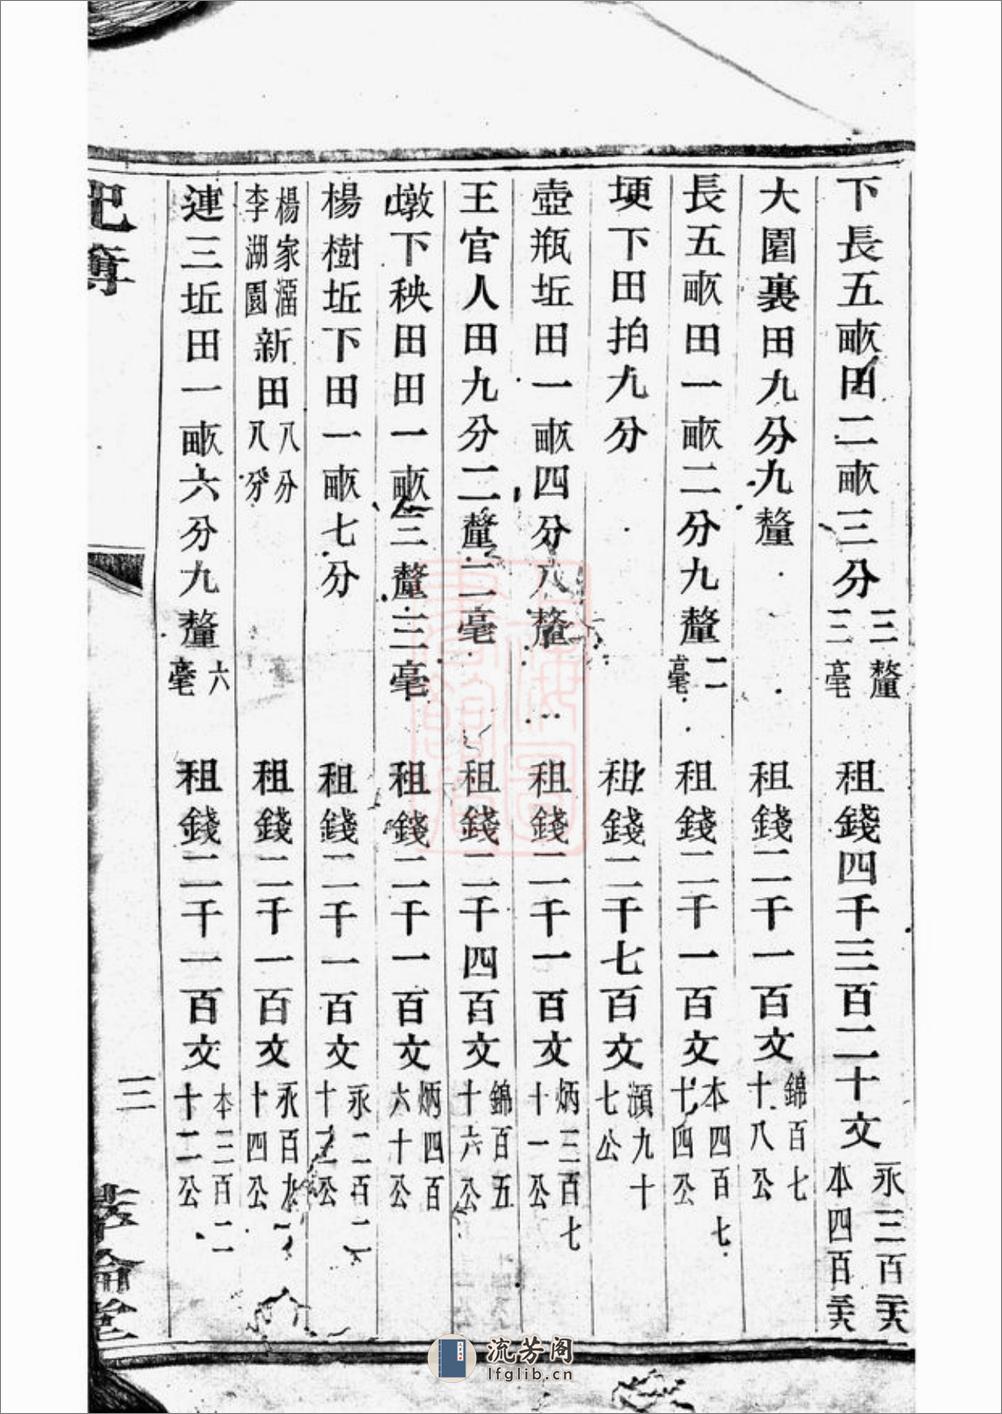 下長五畝田二畝三分三釐三毫 租錢四千三百二十文 永三百 本四百
大園裏田九分九釐 租錢二千一百文 錦百七十八公
長五畝田一畝二分九釐二毫 租錢二千一百文 本四百七十四公
埂下田拍九分 租錢二千七百文 灝九十七公
壺瓶坵田一畝四分八釐 租錢二千一百文 炳三百七十一公
王官人田九分二釐二毫 租錢二千四百文 錦百五十六公
墩下秧田田一畝三釐三毫 租錢二千一百文 炳四百六十公
楊樹坵下田一畝七分 租錢二千一百文 永二百二十二公
楊家湽李湖園新田八分八分 租錢二千一百文 永百九十四公
連三坵田一畝六分九釐六毫 租錢二千一百文 本三百二十二公
祀簿
三
孝倫堂
流芳阁
lfglib.cn